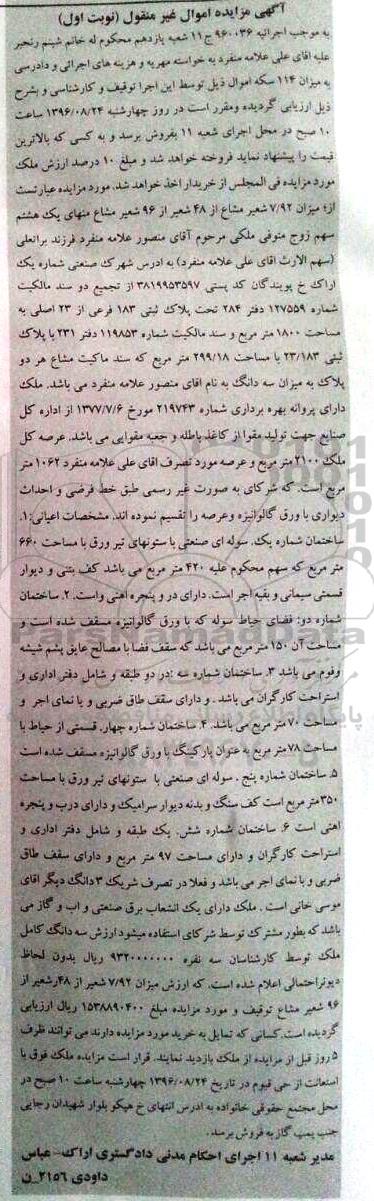 آگهی مزایده اموال غیر منقول (نوبت اول)
به موجب اجرائیه ۹۶۰۰۳۶ ج ۱۱ شعبه یازدهم محکوم له خانم شبنم رنجبر
علیه اقای علی علامه منفرد به خواسته مهریه و هزینه های اجرائی و دادرسی
به میزان ۱۱۴ سکه اموال ذیل توسط این اجرا توقیف و کارشناسی و بشرح
ذیل ارزیابی گردیده ومقرر است در روز چهارشنبه ۱۳۹۶/۰۸/۲۴ ساعت
۱۰ صبح در محل اجرای شعبه ۱۱ بفروش برسد و به کسی که بالاترین
قیمت را پیشنهاد نماید فروخته خواهد شد و مبلغ ۱۰ درصد ارزش ملک
مورد مزایده فی المجلس از خریدار اخذ خواهد شد. مورد مزایده عبارتست
از: میزان ۷/۹۲ شعیر مشاع از ۴۸ شعیر از ۹۶ شعیر مشاع منهای یک هشتم
سهم زوج متوفی ملکی مرحوم آقای منصور علامه منفرد فرزند براتعلی
(سهم الارث اقای علی علامه منفرد) به ادرس شهرک صنعتی شماره یک
اراک خ پویندگان کد پستی ۳۸۱۹۹۵۳۵۹۷ از تجمیع دو سند مالکیت
شماره ۱۲۷۵۵۹ دفتر ۲۸۴ تحت پلاک ثبتی ۱۸۳ فرعی از ۲۳ اصلی به
مساحت ۱۸۰۰ متر مربع و سند مالکیت شماره ۱۱۹۸۵۳ دفتر ۲۳۱ با پلاک
ثبتی ۲۳/۱۸۳ با مساحت ۲۹۹/۱۸ متر مربع که سند ماکیت مشاع هر دو
پلاک به میزان سه دانگ به نام اقای منصور علامه منفرد می باشد. ملک
دارای پروانه بهره برداری شماره ۲۱۹۷۴۳ مورخ ۱۳۷۷/۷/۶ از اداره کل
صنایع جهت تولید مقوا از کاغذ باطله و جعبه مقوایی می باشد. عرصه کل
ملک ۲۱۰۰ متر مربع و عرصه مورد تصرف اقای علی علامه منفرد ۱۰۶۲ متر
مربع است. که شرکای به صورت غیر رسمی طبق خط فرضی و احداث
دیواری با ورق گالوانیزه وعرصه را تقسیم نموده اند. مشخصات اعیانی: ۱.
ساختمان شماره یک. سوله ای صنعتی با ستونهای تیر ورق با مساحت ۶۶۰
متر مربع که سهم محکوم علیه ۴۲۰ متر مربع می باشد کف بتنی و دیوار
قسمتی سیمانی و بقیه اجر است. دارای در و پنجره اهنی واست. ۲. ساختمان
شماره دو: فضای حیاط سوله که با ورق گالوانیزه مسقف شده است و
مساحت آن ۱۵۰ متر مربع می باشد که سقف فضا با مصالح عایق پشم شیشه
وفوم می باشد ۳. ساختمان شماره سه :در دو طبقه و شامل دفتر اداری و
استراحت کارگران می باشد . و دارای سقف طاق ضربی و یا نمای اجر و
مساحت ۷۰ متر مربع می باشد. ۴. ساختمان شماره چهار. قسمتی از حیاط با
مساحت ۷۸ متر مربع به عنوان پارکینگ با ورق گالوانیزه مسقف شده است
۵. ساختمان شماره پنج . سوله ای صنعتی با ستونهای تیر ورق با مساحت
۳۵۰ متر مربع است کف سنگ و بدنه دیوار سرامیک و دارای درب و پنجره
اهنی است ۶. ساختمان شماره شش. یک طبقه و شامل دفتر اداری و
استراحت کارگران و دارای مساحت ۹۷ متر مربع و دارای سقف طاق
ضربی و با نمای اجر می باشد و فعلا در تصرف شریک ۳ دانگ دیگر اقای
موسی خانی است . ملک دارای یک انشعاب برق صنعتی و اب و گاز می
باشد که بطور مشترک توسط شرکای استفاده میشود ارزش سه دانگ کامل
ملک توسط کارشناسان سه نفره ۹۳۲۰۰۰۰۰۰۰ ریال بدون لحاظ
دیونراحتمالی اعلام شده است. که ارزش میزان ۷/۹۲ شعیر از ۴۸رشعیر از
۹۶ شعیر مشاع توقیف و مورد مزایده مبلغ ۱۵۳۸۸۹۰۴۰۰ ریال ارزیابی
گردیده است.کسانی که تمایل به خرید مورد مزایده دارند می توانند ظرف
۵ روز قبل از مزایده از ملک بازدید نمایند. قرار است مزایده ملک فوق با
استعانت از حی قیوم در تاریخ ۱۳۹۶/۰۸/۲۴ چهارشنبه ساعت ۱۰ صبح در
محل مجتمع حقوقی خانواده به ادرس انتهای خ هپکو بلوار شهیدان رجایی
جنب پمپ گاز به فروش برسد.
مدیر شعبه ۱۱ اجرای احکام مدنی دادگستری اراک- عباس
داودی ۲۱۵۶_ن